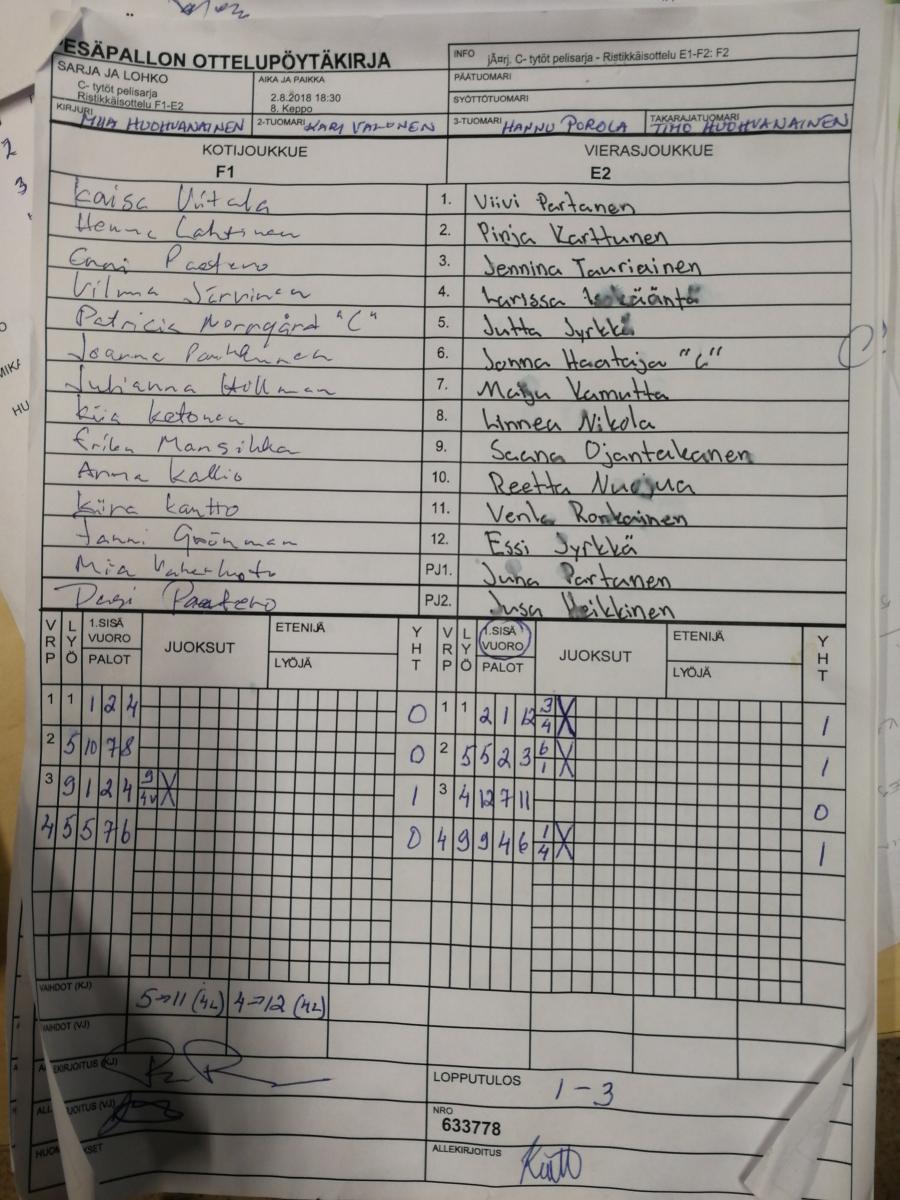 PESÄPALLON OTTELUPÖYTÄKIRJA
INFO jÃ¤rj. C- tytöt pelisarja - Ristikkäisottelu E1-F2: F2
SARJA JA LOHKO
C- tytöt pelisarja
Ristikkäisottelu F1-E2
AIKA JA PAIKKA
2.8.2018 18:30
8. Keppo
PÄÄTUOMARI
SYÖTTÖTUOMARI
KIRJURI MIIA HUOHVANAINEN
2-TUOMARI KARI VALONEN
3-TUOMARI HANNU POROLA
TAKARAJATUOMARI TIMO HUOHVANAINEN
KOTIJOUKKUE VIERASJOUKKUE
F1 E2
Kaisa Viitala 1. Viivi Partanen
Henna Lahtinen 2. Pinja Karttunen
Enni Paatero 3. Jennina Tauriainen
Vilma Järvinen 4. Larissa Isokääntä
Patricia Norrgård "C" 5. Jutta Jyrkkä
Joanna 6. Jonna Haataja "C"
Julianna Hollman 7. Maiju Kamutta
Kiia Ketonen 8. Linnea Nikola
Erika Mansikka 9. Saana Ojantakanen
Anna Kallio 10. Reetta Nuojua
Kiira Kantto 11. Venla Ronkainen
Janni Grönman 12. Essi Jyrkkä
Mia PJ1. Juha Partanen
Paatero PJ2. Jusa Heikkinen
VRP LYÖ 1.SISÄ VUORO PALOT JUOKSUT ETENIJÄ LYÖJÄ YHT VRP LYÖ 1.SISÄ VUORO PALOT JUOKSUT ETENIJÄ LYÖJÄ YHT
1 1 1 2 4 0 1 1 2 1 12 3/4 X 1
2 5 10 7 8 0 2 5 5 2 3 6/1 X 1
3 9 1 2 4 9/4v X 1 3 4 12 7 11 0
4 5 5 7 6 0 4 9 9 4 6 1/4 X 1
VAIHDOT (KJ) 5→11 (4L) 4→12 (4L)
VAIHDOT (VJ)
KIRJOITUS (KJ)
LOPPUTULOS 1-3
NRO
633778
ALLEKIRJOITUS